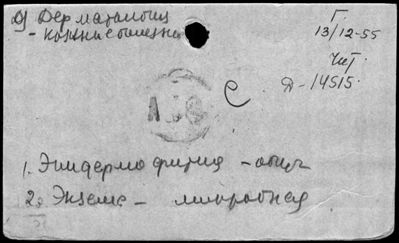 Дерматологич
- кожные болезни
Г.
13/12-55
Чит
Д-14515.
С
1. Эпидермофития - общ
2. Экзема - микробная